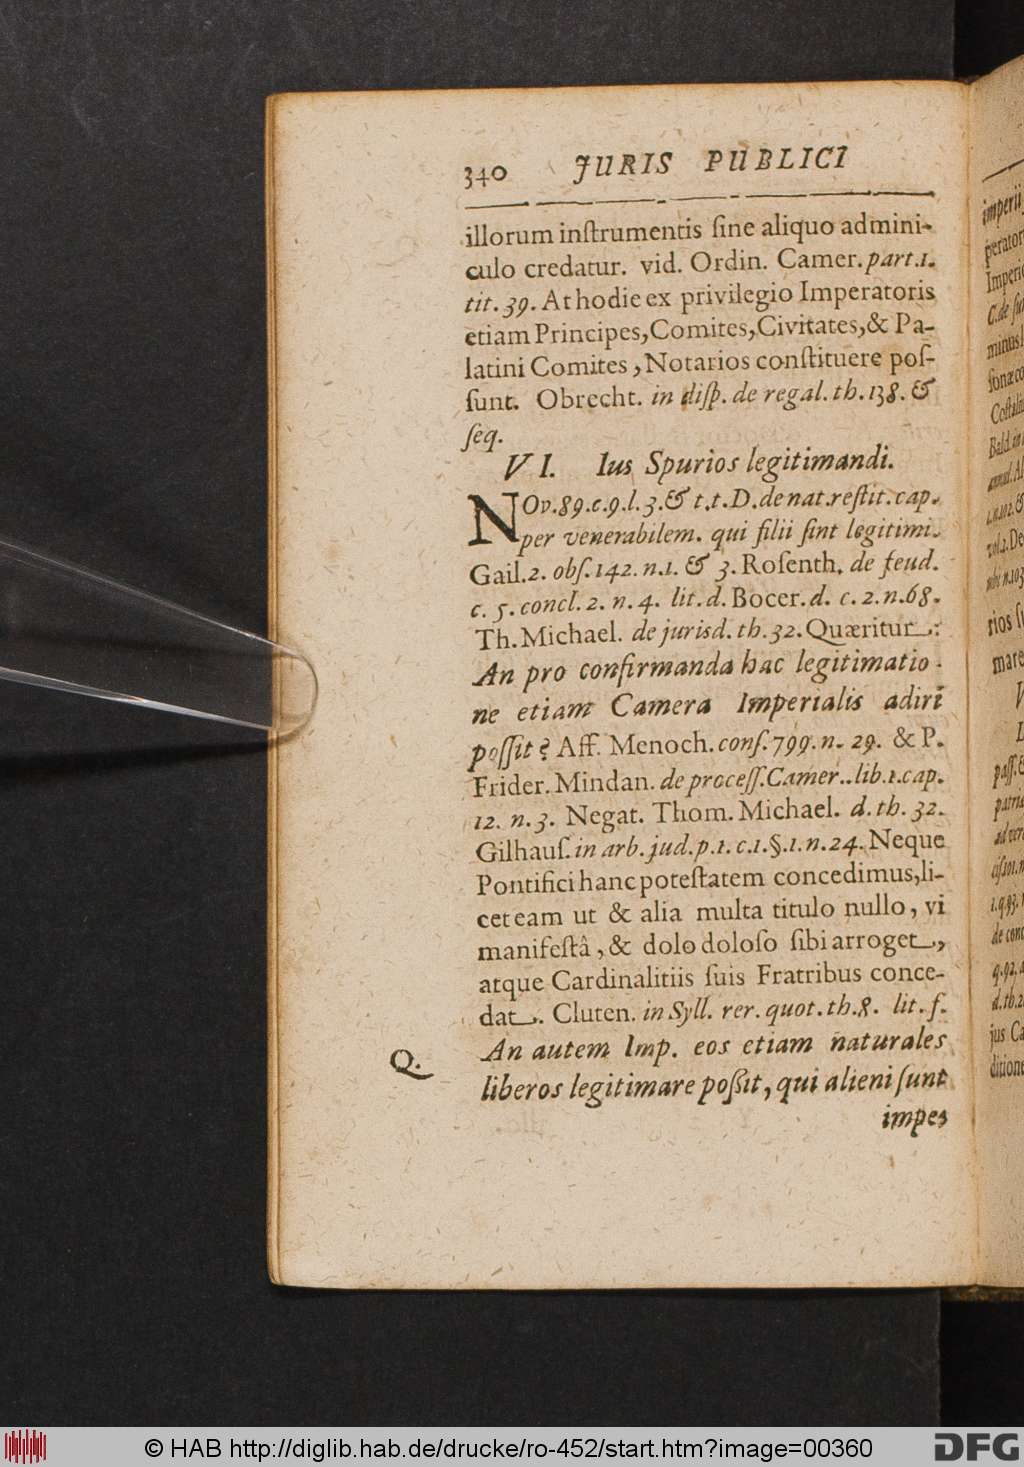 340 JURIS PUBLICI
illorum inſtrumentis ſine aliquo admini-
culo credatur. vid. Ordin. Camer. part. 1.
tit. 39. At hodie ex privilegio Imperatoris
etiam Principes, Comites, Civitates, & Pa-
latini Comites, Notarios conſtituere poſ-
ſunt. Obrecht. in diſp. de regal. th. 138. &
ſeq.
VI. Ius Spurios legitimandi.
NOv. 89. c. 9. l. 3. & t. t. D. de nat. reſtit. cap.
per venerabilem. qui filii ſint legitimi.
Gail. 2. obſ. 142. n. 1. & 3. Roſenth. de feud.
c. 5. concl. 2. n. 4. lit. d. Bocer. d. c. 2. n. 68.
Th. Michael. de jurisd. th. 32. Quæritur:
An pro confirmanda hac legitimatio-
ne etiam Camera Imperialis adiri
poſſit? Aff. Menoch. conſ. 799. n. 29. & P.
Frider. Mindan. de proceſſ. Camer.. lib. 1. cap.
12. n. 3. Negat. Thom. Michael. d. th. 32.
Gilhauſ. in arb. jud. p. 1. c. 1. §. 1. n. 24. Neque
Pontifici hanc poteſtatem concedimus, li-
cet eam ut & alia multa titulo nullo, vi
manifeſtâ, & dolo doloſo ſibi arroget,
atque Cardinalitiis ſuis Fratribus conce-
dat. Cluten. in Syll. rer. quot. th. 8. lit. f.
Q. An autem Imp. eos etiam naturales
liberos legitimare poſſit, qui alieni ſunt
impe-
imperii
perator
Imperio
C. de
minus
Bald.
rios
mare
patria
de conc
jus Ca
ditione
© HAB http://diglib.hab.de/drucke/ro-452/start.htm?image=00360
DFG